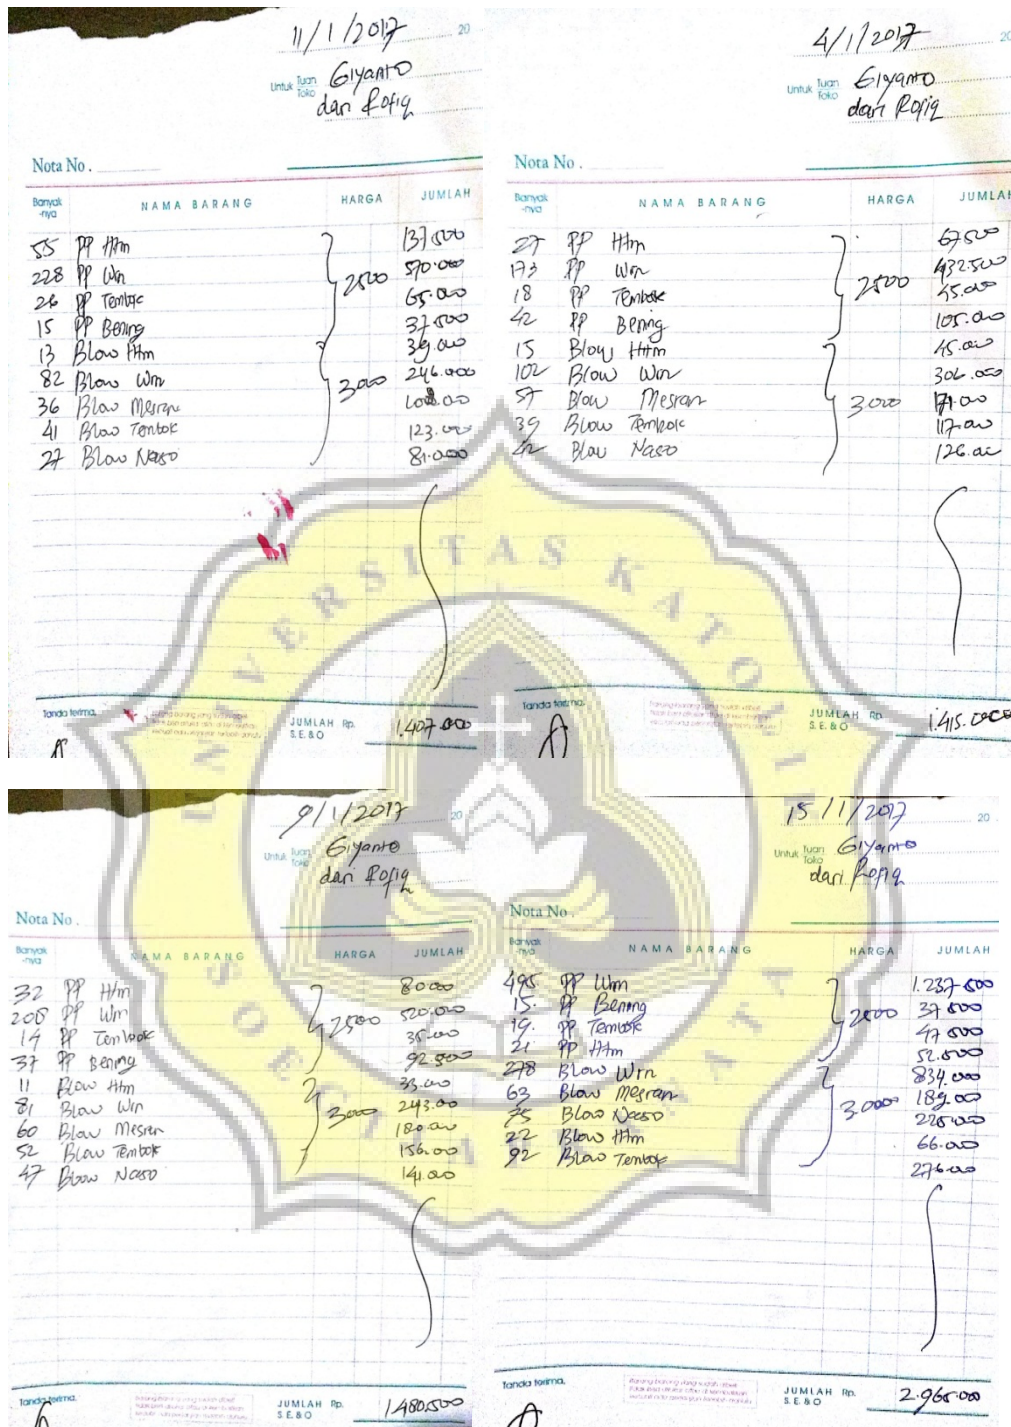 11/1/2017 20
Untuk Tuan Toko Giyanto
dari Rofiq
Nota No.
Banyak-nya NAMA BARANG HARGA JUMLAH
55 PP Htm 137.500
228 PP Wrn 2500 570.000
26 PP Tembok 65.000
15 PP Bening 37.500
13 Blow Htm 39.000
82 Blow Wrn 3000 246.000
36 Blow Mesran 108.00
41 Blow Tembok 123.000
27 Blow Naso 81.000
Tanda terima,
JUMLAH Rp. 1.407.000
S.E.&O
4/1/2017 20
Untuk Tuan Toko Giyanto
dari Rofiq
Nota No.
Banyak-nya NAMA BARANG HARGA JUMLAH
27 PP Htm 67.500
173 PP Wrn 2500 432.500
18 PP Tembok 45.000
42 PP Bening 105.000
15 Blow Htm 45.000
102 Blow Wrn 306.000
57 Blow Mesran 3000 171.00
39 Blow Tembok 117.000
42 Blow Naso 126.00
Tanda terima,
JUMLAH Rp. 1.415.000
S.E.&O
9/1/2017 20
Untuk Tuan Toko Giyanto
dari Rofiq
Nota No.
Banyak-nya NAMA BARANG HARGA JUMLAH
32 PP Htm 80.00
208 PP Wrn 2500 520.000
14 PP Tembok 35.00
37 PP Bening 92.500
11 Blow Htm 33.00
81 Blow Wrn 3000 243.00
60 Blow Mesran 180.00
52 Blow Tembok 156.00
47 Blow Naso 141.00
Tanda terima,
JUMLAH Rp. 1.480.500
S.E.&O
15/1/2017 20
Untuk Tuan Toko Giyanto
dari Rofiq
Nota No.
Banyak-nya NAMA BARANG HARGA JUMLAH
495 PP Wrn 1.237.500
15. PP Bening 2500 37.500
19. PP Tembok 47.500
21 PP Htm 52.500
278 Blow Wrn 834.000
63 Blow Mesran 3.0000 189.00
75 Blow Naso 225.000
22 Blow Htm 66.000
92 Blow Tembok 276.00
Tanda terima,
JUMLAH Rp. 2.965.00
S.E.&O
UNIVERSITAS KATOLIK
SOEGIJAPRANATA